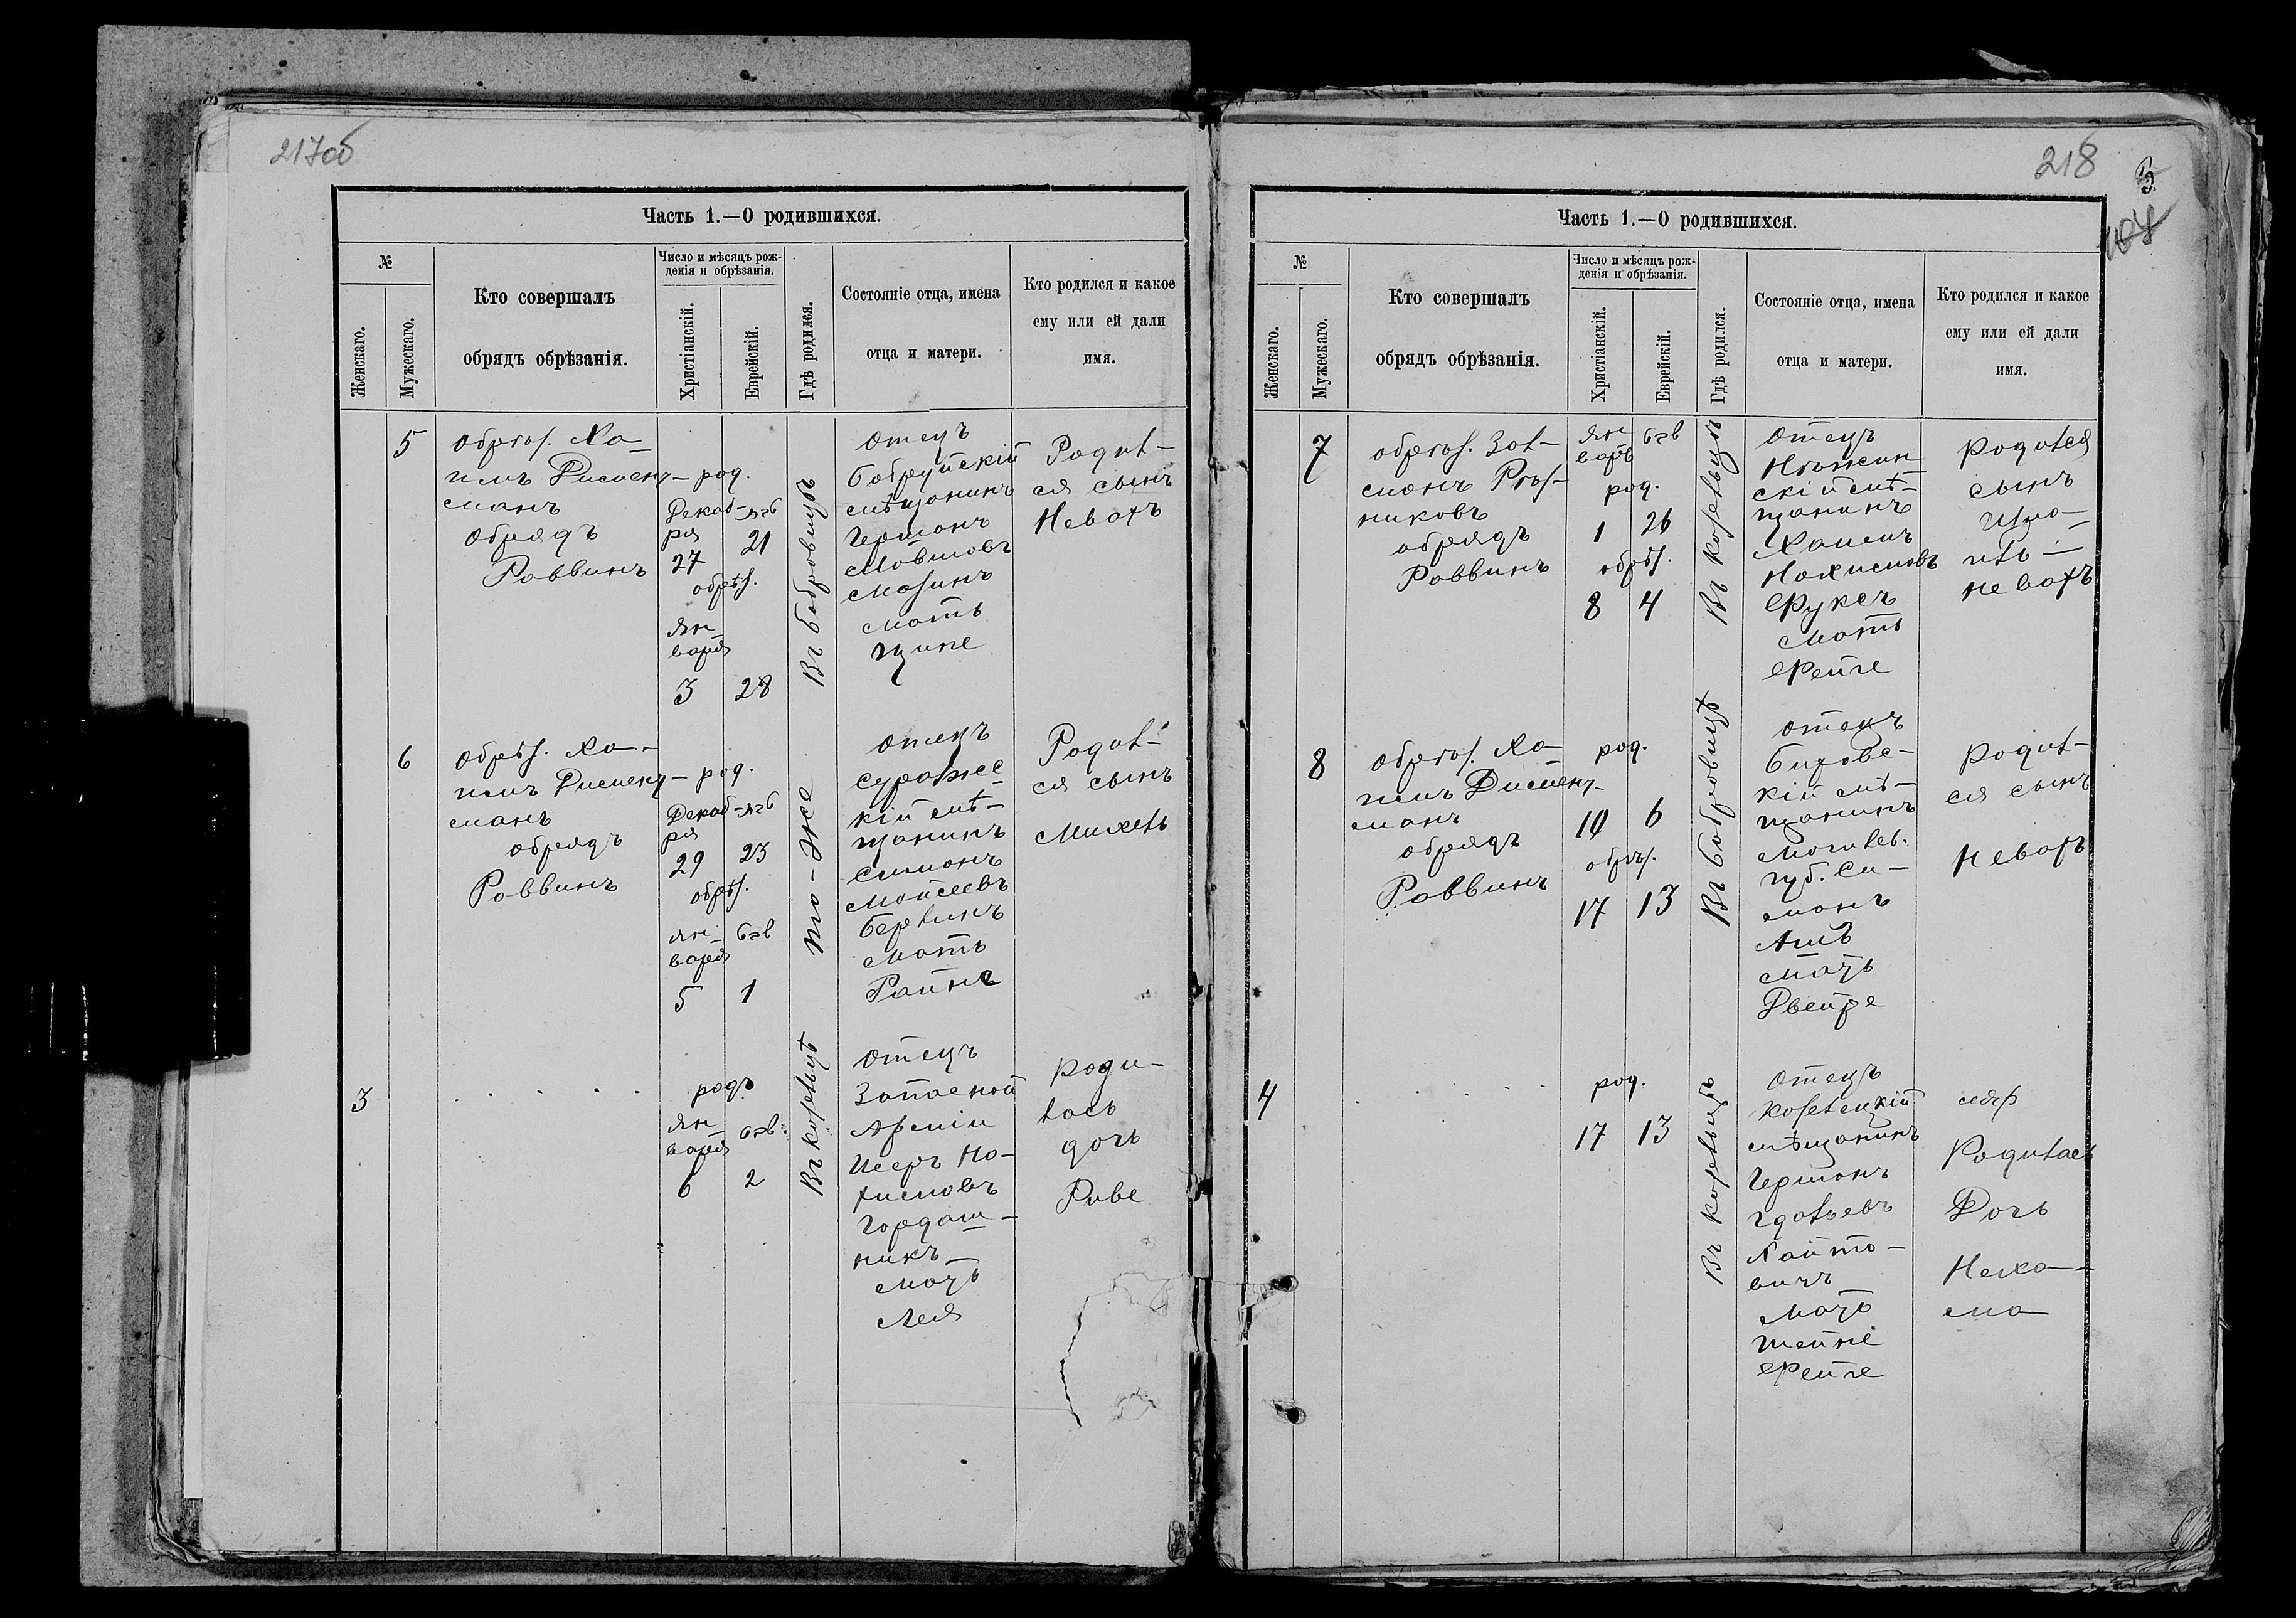 217об
Часть 1.—О родившихся.
№
Женскаго.
Мужескаго.
Кто совершалъ
обрядъ обрѣзанія.
Число и мѣсяцъ рож-
денія и обрѣзанія.
Христіанскій.
Еврейскій.
Гдѣ родился.
Состояніе отца, имена
отца и матери.
Кто родился и какое
ему или ей дали
имя.
5
обрѣз. Ха-
имъ
манъ
обрядъ
Раввинъ
род.
Декаб-
ря
27
21
обрѣз.
Ян-
варя
3
28
Въ Бобровицѣ
Отецъ
Бобруйскій
мѣщанинъ
Гершонъ
Мовшовъ
Мазинъ
Мать
Ципе
Родил-
ся сынъ
Невахъ
6
обрѣз. Ха-
имъ
манъ
обрядъ
Раввинъ
род.
Декаб-
ря
29
23
обрѣз.
Ян-
варя
5
1
то-же
Отецъ
Суражс
кій мѣ-
щанинъ
Симонъ
Мойсеевъ
Берлинъ
Мать
Райне
Родил-
ся сынъ
Михель
3
родъ
Ян-
варя
6
2
Въ Козельцѣ
Отецъ
Запасной
Арміи
Исеръ На-
химовъ
Гордаш-
никъ
Мать
Лея
Роди-
лась
дочь
Риве
218
Часть 1.—О родившихся.
№
Женскаго.
Мужескаго.
Кто совершалъ
обрядъ обрѣзанія.
Число и мѣсяцъ рож-
денія и обрѣзанія.
Христіанскій.
Еврейскій.
Гдѣ родился.
Состояніе отца, имена
отца и матери.
Кто родился и какое
ему или ей дали
имя.
7
обрѣз. Зал-
манъ Рѣз-
никовъ
обрядъ
Раввинъ
Ян-
варь
род.
1
26
обрѣз.
8
4
Въ Козельцѣ
Отецъ
Нѣжин
скій мѣ-
щанинъ
Хаимъ
Нахимовъ
Фуксъ
Мать
Фейге
Родился
сынъ
Изра-
иль-
Невахъ
8
обрѣз. Ха-
имъ
манъ
обрядъ
Раввинъ
род.
10
6
обрѣз.
17
13
Въ Бобровицѣ
Отецъ
кій мѣ-
щанинъ
Могилев.
губ. Си-
монъ
Мать
Двейре
Родил-
ся сынъ
Невахъ
4
род.
17
13
Въ Козельцѣ
Отецъ
Козелецкій
мѣщанинъ
Гершонъ
Гдальевъ
Хайто-
вичъ
Мать
Шейне
Фейге
Родилась
Дочь
Неха-
ма